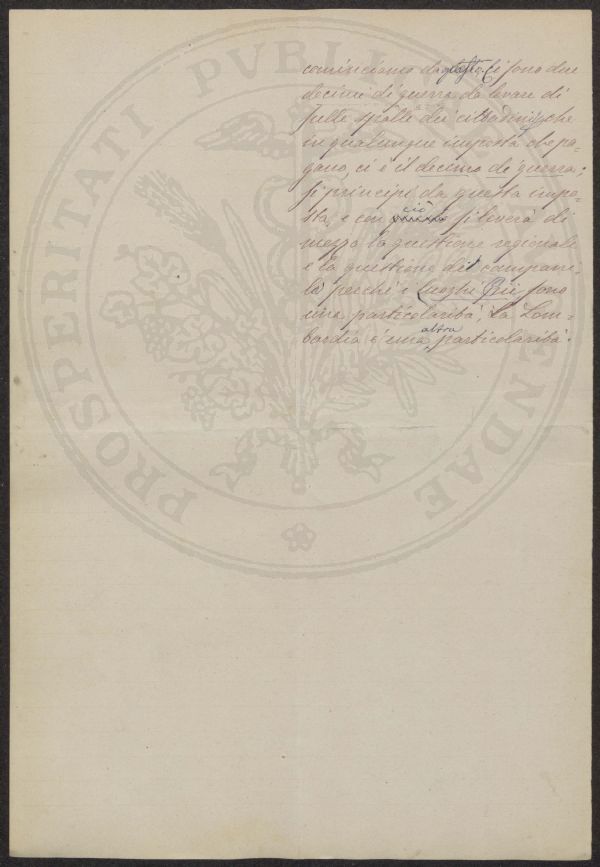 cominciamo da questa. Ci sono due
decimi di guerra da levare di
sulle spalle dei cittadini, che
in qualunque imposta che pa-
gano, ci è il decimo di guerra;
si principi da questa impo-
sta, e con ciò si leverà di
mezzo la questione regionale
e la questione dei campani-
li perchè i Luoghi Pii sono
una particolarità, la Lom-
bardia è una altra particolarità.
PROSPERITATI PVBLI ENDAE